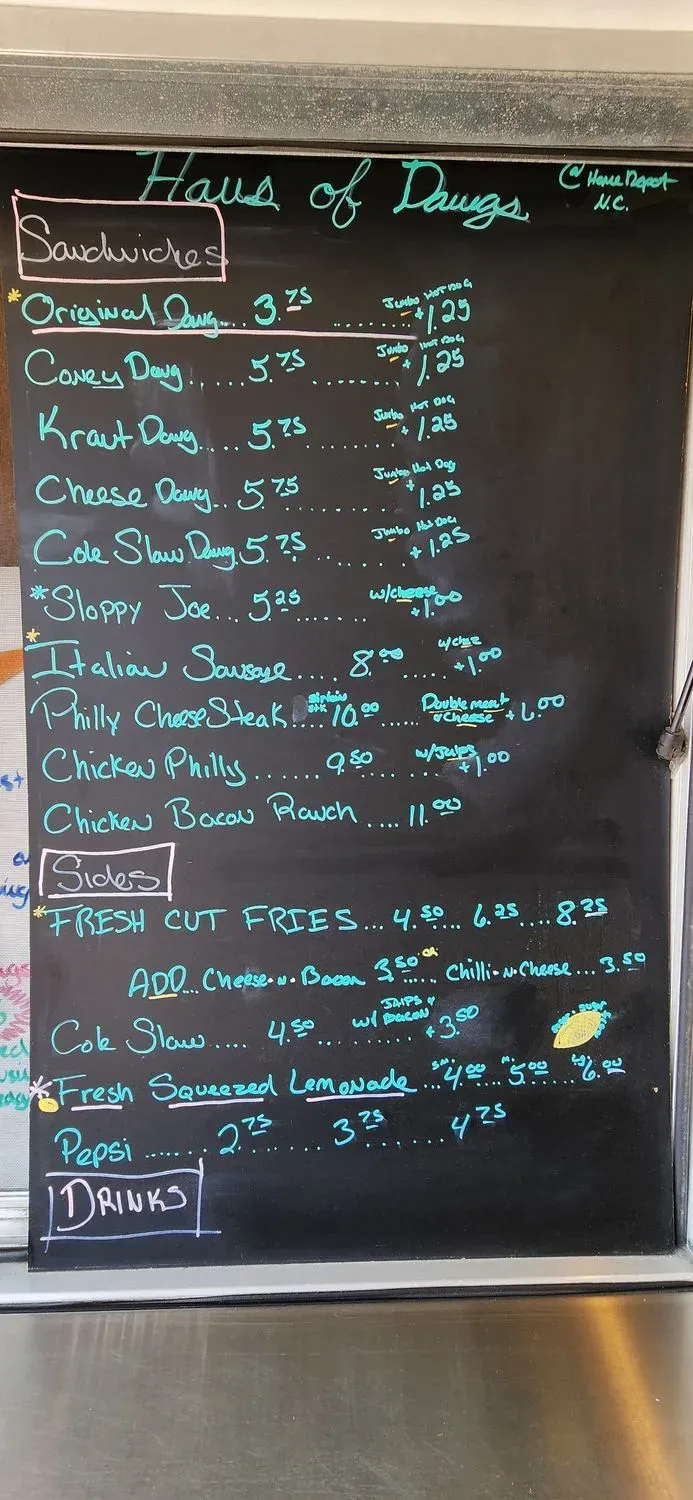 Haus of Dawgs @ Home Depot N.C.
Sandwiches
* Original Dawg.... 3.75 ........ Jumbo HOT DOG +1.25
Coney Dawg ..... 5.75 ........ Jumbo HOT DOG +1.25
Kraut Dawg..... 5.75 ........ Jumbo HOT DOG +1.25
Cheese Dawg.. 5.75 ........ Jumbo Hot Dog +1.25
Cole Slaw Dawg. 5.75 ....... Jumbo Hot DOG +1.25
* Sloppy Joe... 5.25 ....... w/cheese +1.00
* Italian Sausage.... 8.00 ..... +1.00
Philly Cheese Steak.... 10.00 ..... Double meat & cheese +6.00
Chicken Philly ....... 9.50 ..... w/Jalps +1.00
Chicken Bacon Ranch .... 11.00
Sides
* FRESH CUT FRIES... 4.50.... 6.25 ....8.25
ADD... Cheese·n·Bacon 3.50 or ..... Chilli·N·Cheese ... 3.50
Cole Slaw .... 4.50 ........ w/ JALPS & BACON +3.50
* Fresh Squeezed Lemonade ...sm. 4.00 .... m. 5.00 ....... Lg. 6.00
Pepsi ....... 2.75 ....... 3.75 ....... 4.75
DRINKS